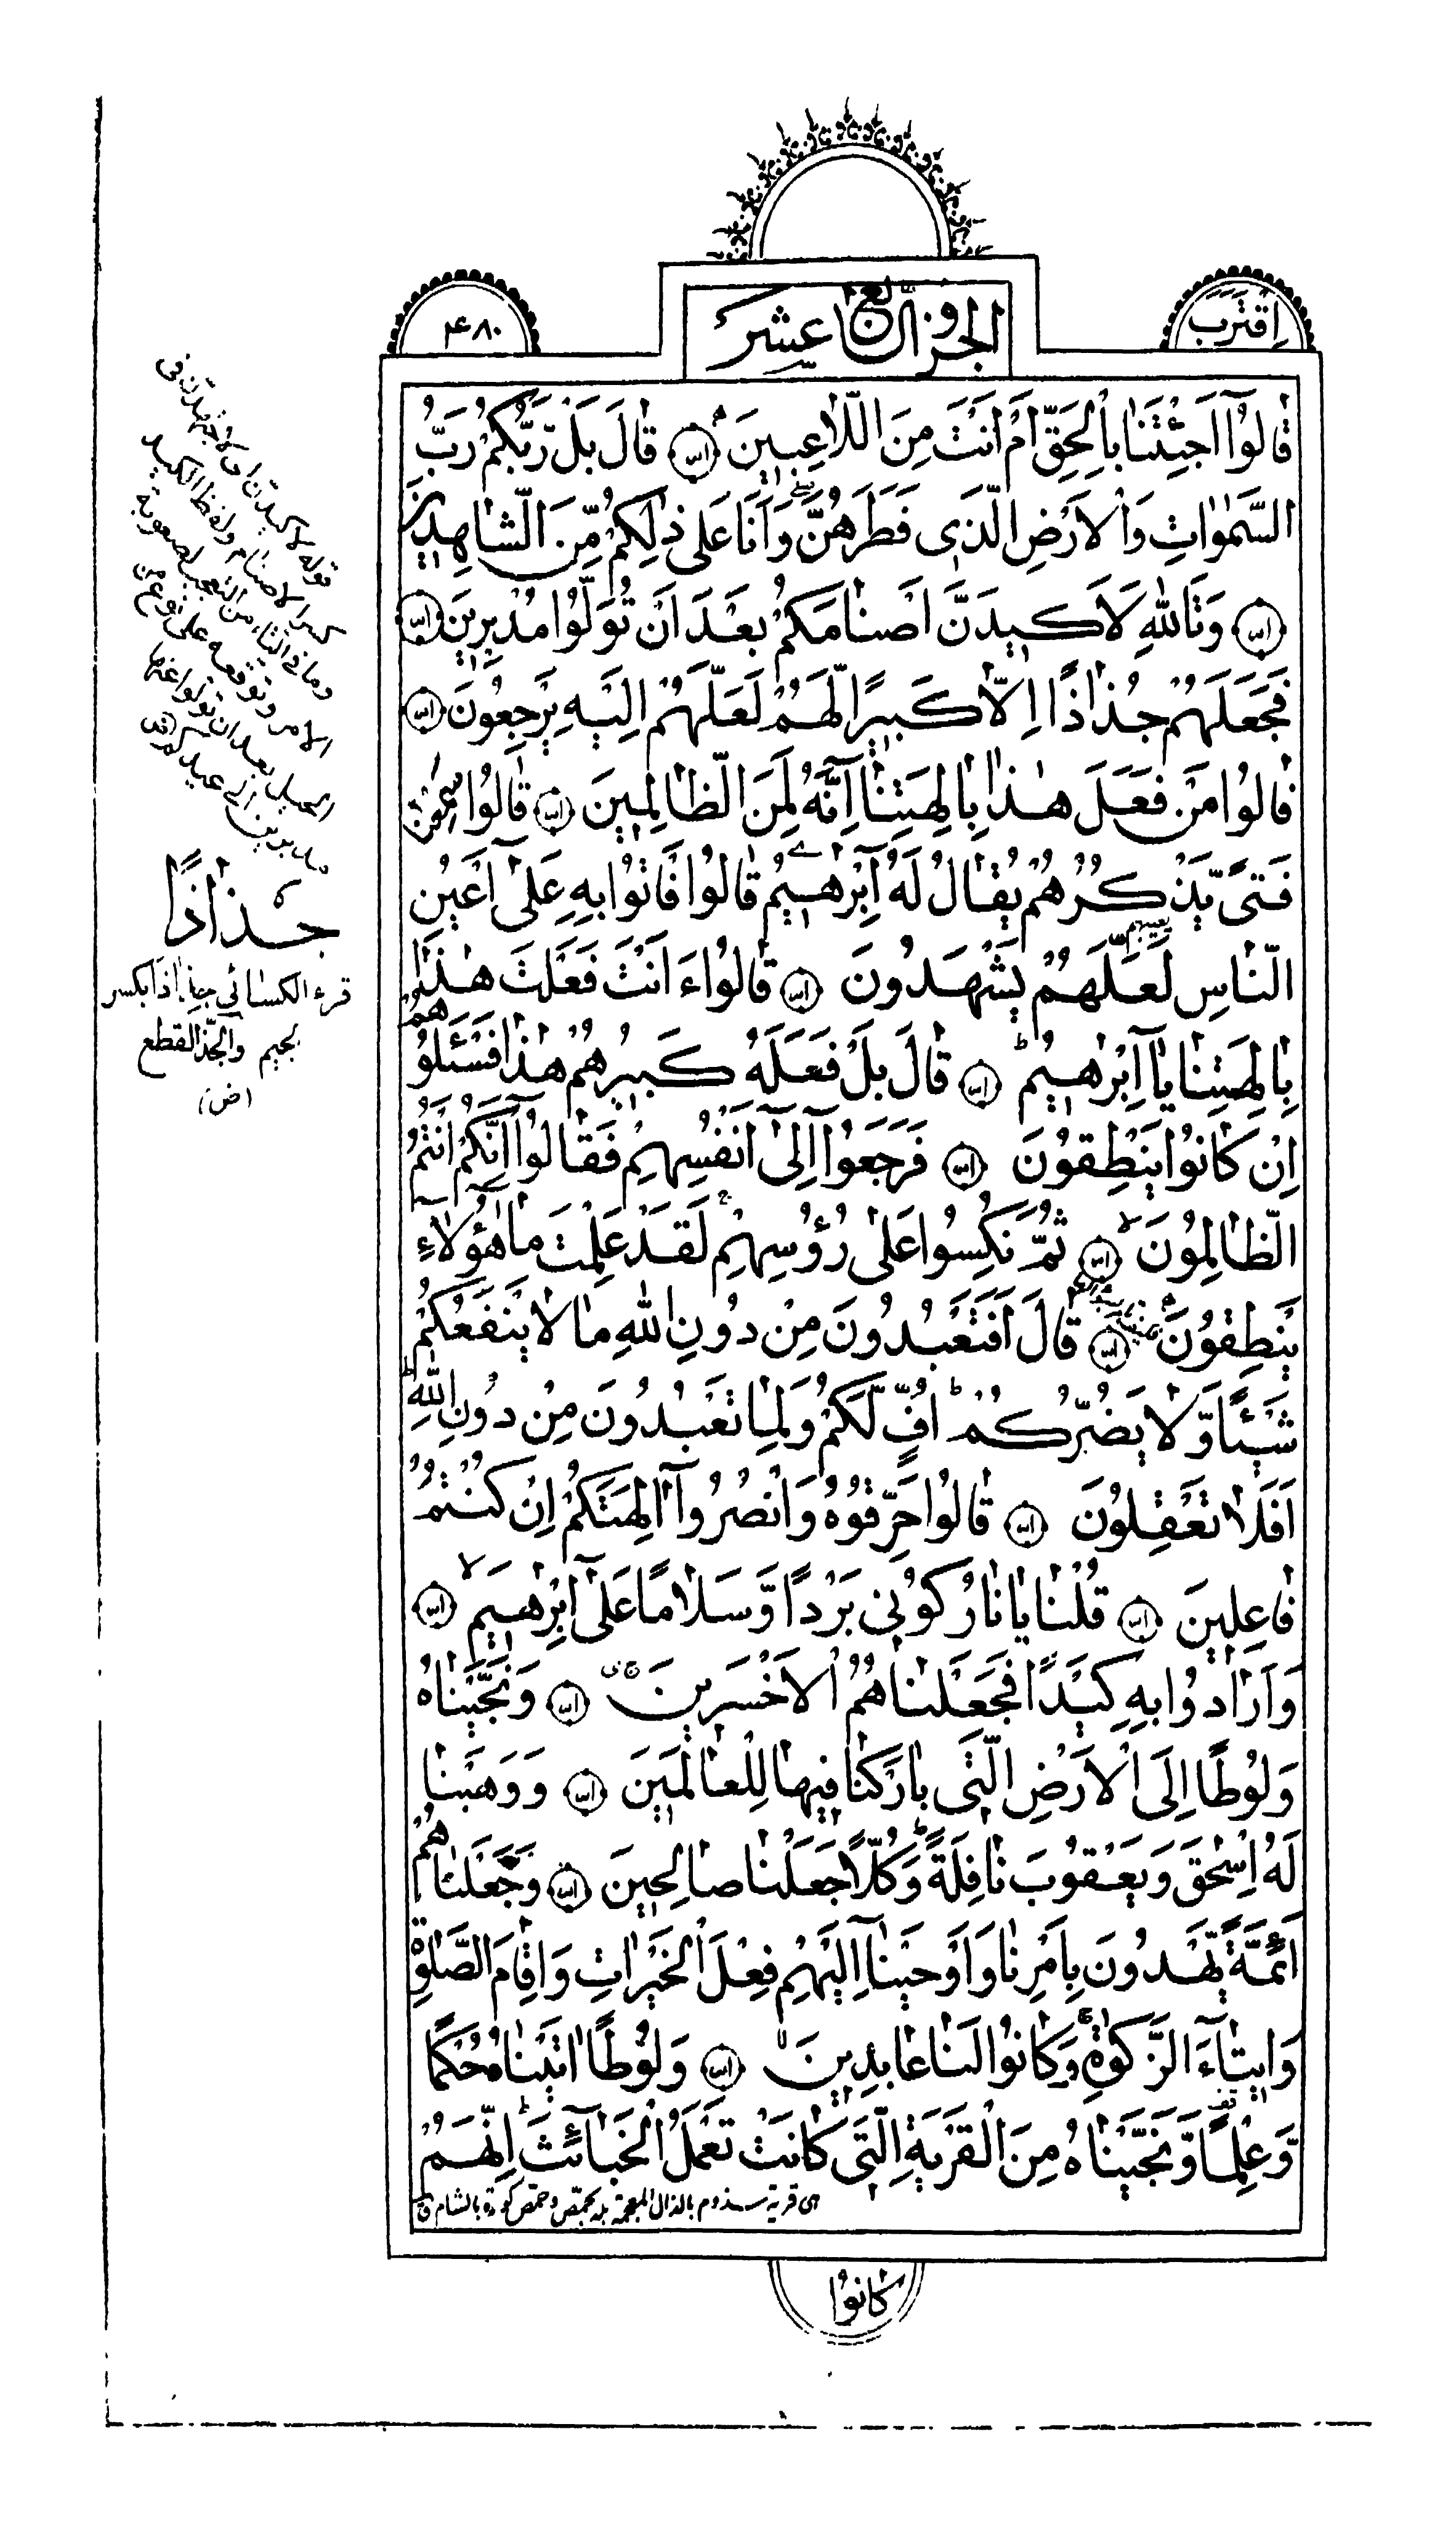 اِقْتَرَبَ
الجزؤالسابع عشر
۴۸۰
قَالُوٓا اَجِئْتَنَا بِالْحَقِّ اَمْ اَنْتَ مِنَ اللَّاعِبِينَ ۝ قَالَ بَلْ رَبُّكُمْ رَبُّ
السَّمٰوَاتِ وَالْاَرْضِ الَّذِي فَطَرَهُنَّ وَاَنَا عَلٰى ذٰلِكُمْ مِّنَ الشَّاهِدِينَ
۝ وَتَاللّٰهِ لَاَكِيدَنَّ اَصْنَامَكُمْ بَعْدَ اَنْ تُوَلُّوا مُدْبِرِينَ ۝
فَجَعَلَهُمْ جُذَاذًا اِلَّا كَبِيرًا لَّهُمْ لَعَلَّهُمْ اِلَيْهِ يَرْجِعُونَ ۝
قَالُوا مَنْ فَعَلَ هٰذَا بِاٰلِهَتِنَآ اِنَّهُ لَمِنَ الظَّالِمِينَ ۝ قَالُوا سَمِعْنَا
فَتًى يَّذْكُرُهُمْ يُقَالُ لَهُٓ اِبْرٰهِيمُ قَالُوا فَأْتُوا بِهِ عَلٰٓى اَعْيُنِ
النَّاسِ لَعَلَّهُمْ يَشْهَدُونَ ۝ قَالُوا ءَاَنْتَ فَعَلْتَ هٰذَا
بِاٰلِهَتِنَا يَآ اِبْرٰهِيمُ ۝ قَالَ بَلْ فَعَلَهُ كَبِيرُهُمْ هٰذَا فَسْئَلُوهُمْ
اِنْ كَانُوا يَنْطِقُونَ ۝ فَرَجَعُوٓا اِلٰٓى اَنْفُسِهِمْ فَقَالُوٓا اِنَّكُمْ اَنْتُمُ
الظَّالِمُونَ ۝ ثُمَّ نُكِسُوا عَلٰى رُؤُسِهِمْ لَقَدْ عَلِمْتَ مَا هٰٓؤُلَآءِ
يَنْطِقُونَ ۝ قَالَ اَفَتَعْبُدُونَ مِنْ دُونِ اللّٰهِ مَا لَا يَنْفَعُكُمْ
شَيْئًا وَّلَا يَضُرُّكُمْ اُفٍّ لَّكُمْ وَلِمَا تَعْبُدُونَ مِنْ دُونِ اللّٰهِ
اَفَلَا تَعْقِلُونَ ۝ قَالُوا حَرِّقُوهُ وَانْصُرُوٓا اٰلِهَتَكُمْ اِنْ كُنْتُمْ
فَاعِلِينَ ۝ قُلْنَا يَا نَارُ كُونِي بَرْدًا وَّسَلَامًا عَلٰٓى اِبْرٰهِيمَ ۝
وَاَرَادُوا بِهِ كَيْدًا فَجَعَلْنَاهُمُ الْاَخْسَرِينَ ۝ وَنَجَّيْنَاهُ
وَلُوطًا اِلَى الْاَرْضِ الَّتِي بَارَكْنَا فِيهَا لِلْعَالَمِينَ ۝ وَوَهَبْنَا
لَهُ اِسْحٰقَ وَيَعْقُوبَ نَافِلَةً وَكُلًّا جَعَلْنَا صَالِحِينَ ۝ وَجَعَلْنَاهُمْ
اَئِمَّةً يَّهْدُونَ بِاَمْرِنَا وَاَوْحَيْنَآ اِلَيْهِمْ فِعْلَ الْخَيْرَاتِ وَاِقَامَ الصَّلٰوةِ
وَاِيتَآءَ الزَّكٰوةِ وَكَانُوا لَنَا عَابِدِينَ ۝ وَلُوطًا اٰتَيْنَاهُ حُكْمًا
وَّعِلْمًا وَّنَجَّيْنَاهُ مِنَ الْقَرْيَةِ الَّتِي كَانَتْ تَعْمَلُ الْخَبَآئِثَ اِنَّهُمْ
هي قرية سذوم بالذال المعجمة بلد بحمص وحمص كورة بالشام
كَانُوا
قوله لاكيدن اى لاجتهدن فى
كسر الاصنام ولفظ الكيد
وما فى التاء من التعجب لصعوبة
الامر وتوقفه على نوع من
الحيل بعد ان تولوا عنها
مدبرين الى عيدكم
جُذَاذًا
قرء الكسائي جِذاذا بكسر
الجيم والجذ القطع
(ض)